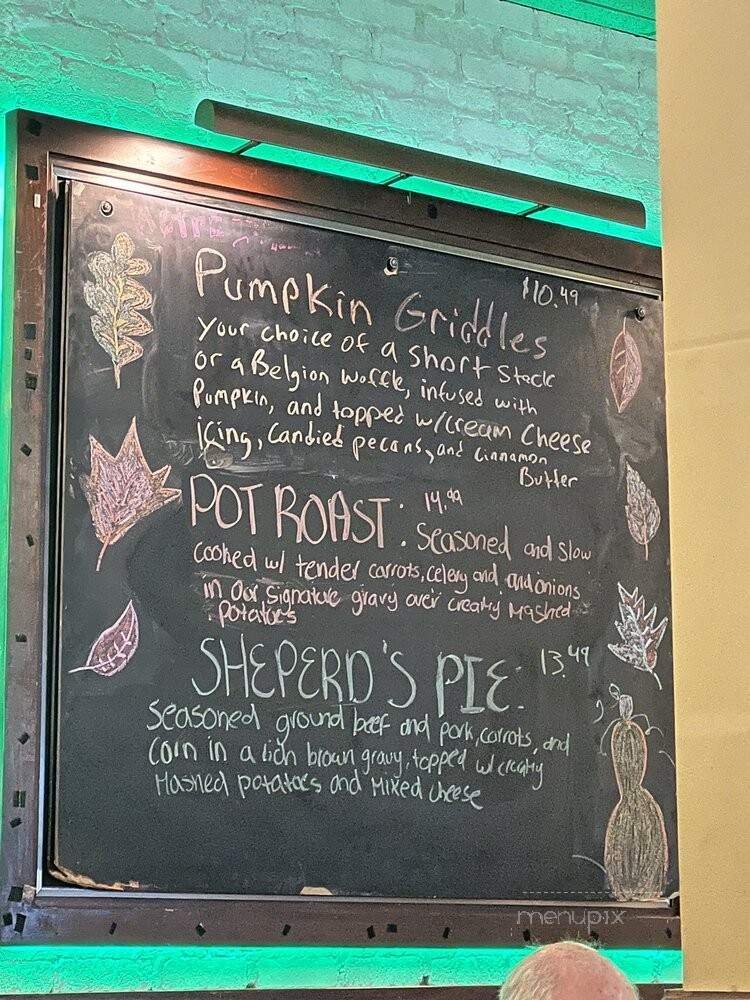 Pumpkin Griddles $10.49
your choice of a short stack
or a Belgion waffle, infused with
Pumpkin, and topped w/cream cheese
icing, candied pecans, and cinnamon
Butter
POT ROAST: 14.99
Seasoned and slow
cooked w/ tender carrots, celery and and onions
in our signature gravy over creamy mashed
potatoes
SHEPERD'S PIE: 13.49
Seasoned ground beef and pork, carrots, and
corn in a rich brown gravy, topped w/ creamy
Mashed potatoes and Mixed cheese
menupix